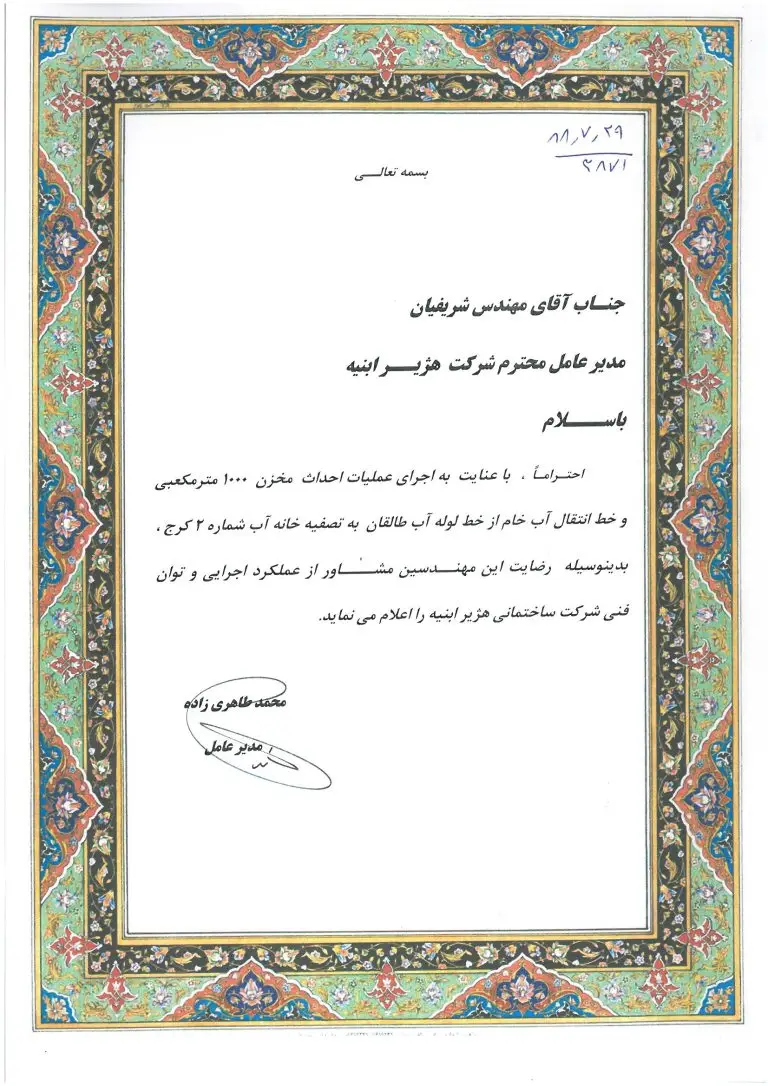 ۸۸٫۷٫۲۹
۲۸۷۱
بسمه تعالـــی
جنـــاب آقای مهندس شریفیان
مدیر عامل محترم شرکت هژیـــــر ابنیه
باســـــــلام
احتـرامـاً ، با عنایت به اجرای عملیات احداث مخزن ۱۰۰۰ مترمکعبی
و خط انتقال آب خام از خط لوله آب طالقان به تصفیه خانه آب شماره ۲ کرج ،
بدینوسیله رضایت این مهنـــدسین مشـــــاور از عملکرد اجرایی و توان
فنی شرکت ساختمانی هژیر ابنیه را اعلام می نماید.
محمد طاهری زاده
مدیر عامل